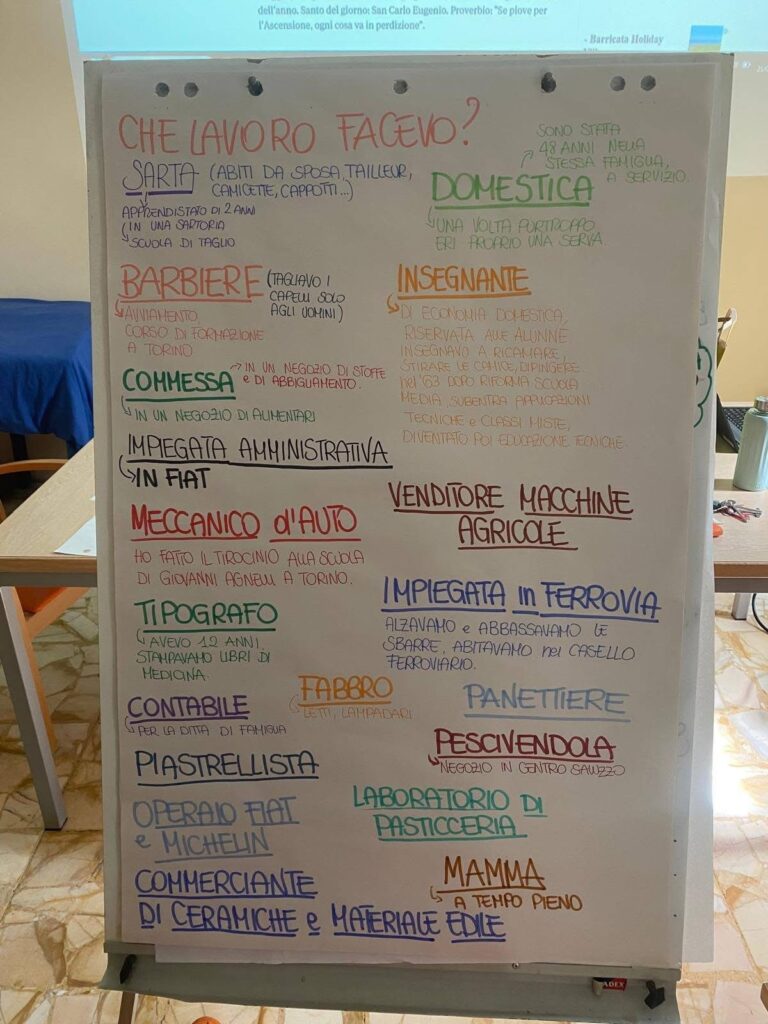 dell'anno. Santo del giorno: San Carlo Eugenio. Proverbio: "Se piove per
l'Ascensione, ogni cosa va in perdizione".
- Barricata Holiday
CHE LAVORO FACEVO?
SARTA (ABITI DA SPOSA, TAILLEUR,
CAMICETTE, CAPPOTTI...)
APPRENDISTATO DI 2 ANNI
IN UNA SARTORIA
SCUOLA DI TAGLIO
SONO STATA
48 ANNI NELLA
STESSA FAMIGLIA,
A SERVIZIO.
DOMESTICA
UNA VOLTA PURTROPPO
ERI PROPRIO UNA SERVA.
BARBIERE (TAGLIAVO I
CAPELLI SOLO
AGLI UOMINI)
AVVIAMENTO,
CORSO DI FORMAZIONE
A TORINO
INSEGNANTE
DI ECONOMIA DOMESTICA,
RISERVATA ALLE ALUNNE.
INSEGNAVO A RICAMARE,
STIRARE LE CAMICE, DIPINGERE.
nel '63 DOPO RIFORMA SCUOLA
MEDIA SUBENTRA APPLICAZIONI
TECNICHE e CLASSI MISTE,
DIVENTATO POI EDUCAZIONE TECNICHE.
COMMESSA
IN UN NEGOZIO DI STOFFE
e DI ABBIGLIAMENTO.
IN UN NEGOZIO DI ALIMENTARI
IMPIEGATA AMMINISTRATIVA
IN FIAT
VENDITORE MACCHINE
AGRICOLE
MECCANICO d'AUTO
HO FATTO IL TIROCINIO ALLA SCUOLA
DI GIOVANNI AGNELLI A TORINO.
IMPIEGATA in FERROVIA
ALZAVAMO e ABBASSAVAMO LE
SBARRE, ABITAVAMO nel CASELLO
FERROVIARIO.
TIPOGRAFO
AVEVO 12 ANNI.
STAMPAVAMO LIBRI DI
MEDICINA.
FABBRO
LETTI, LAMPADARI
PANETTIERE
CONTABILE
PER LA DITTA DI FAMIGLIA
PESCIVENDOLA
NEGOZIO IN CENTRO SALUZZO
PIASTRELLISTA
LABORATORIO DI
PASTICCERIA
OPERAIO FIAT
e MICHELIN
MAMMA
A TEMPO PIENO
COMMERCIANTE
DI CERAMICHE e MATERIALE EDILE